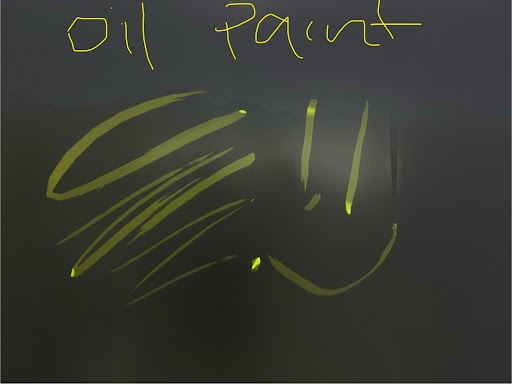 Oil Paint